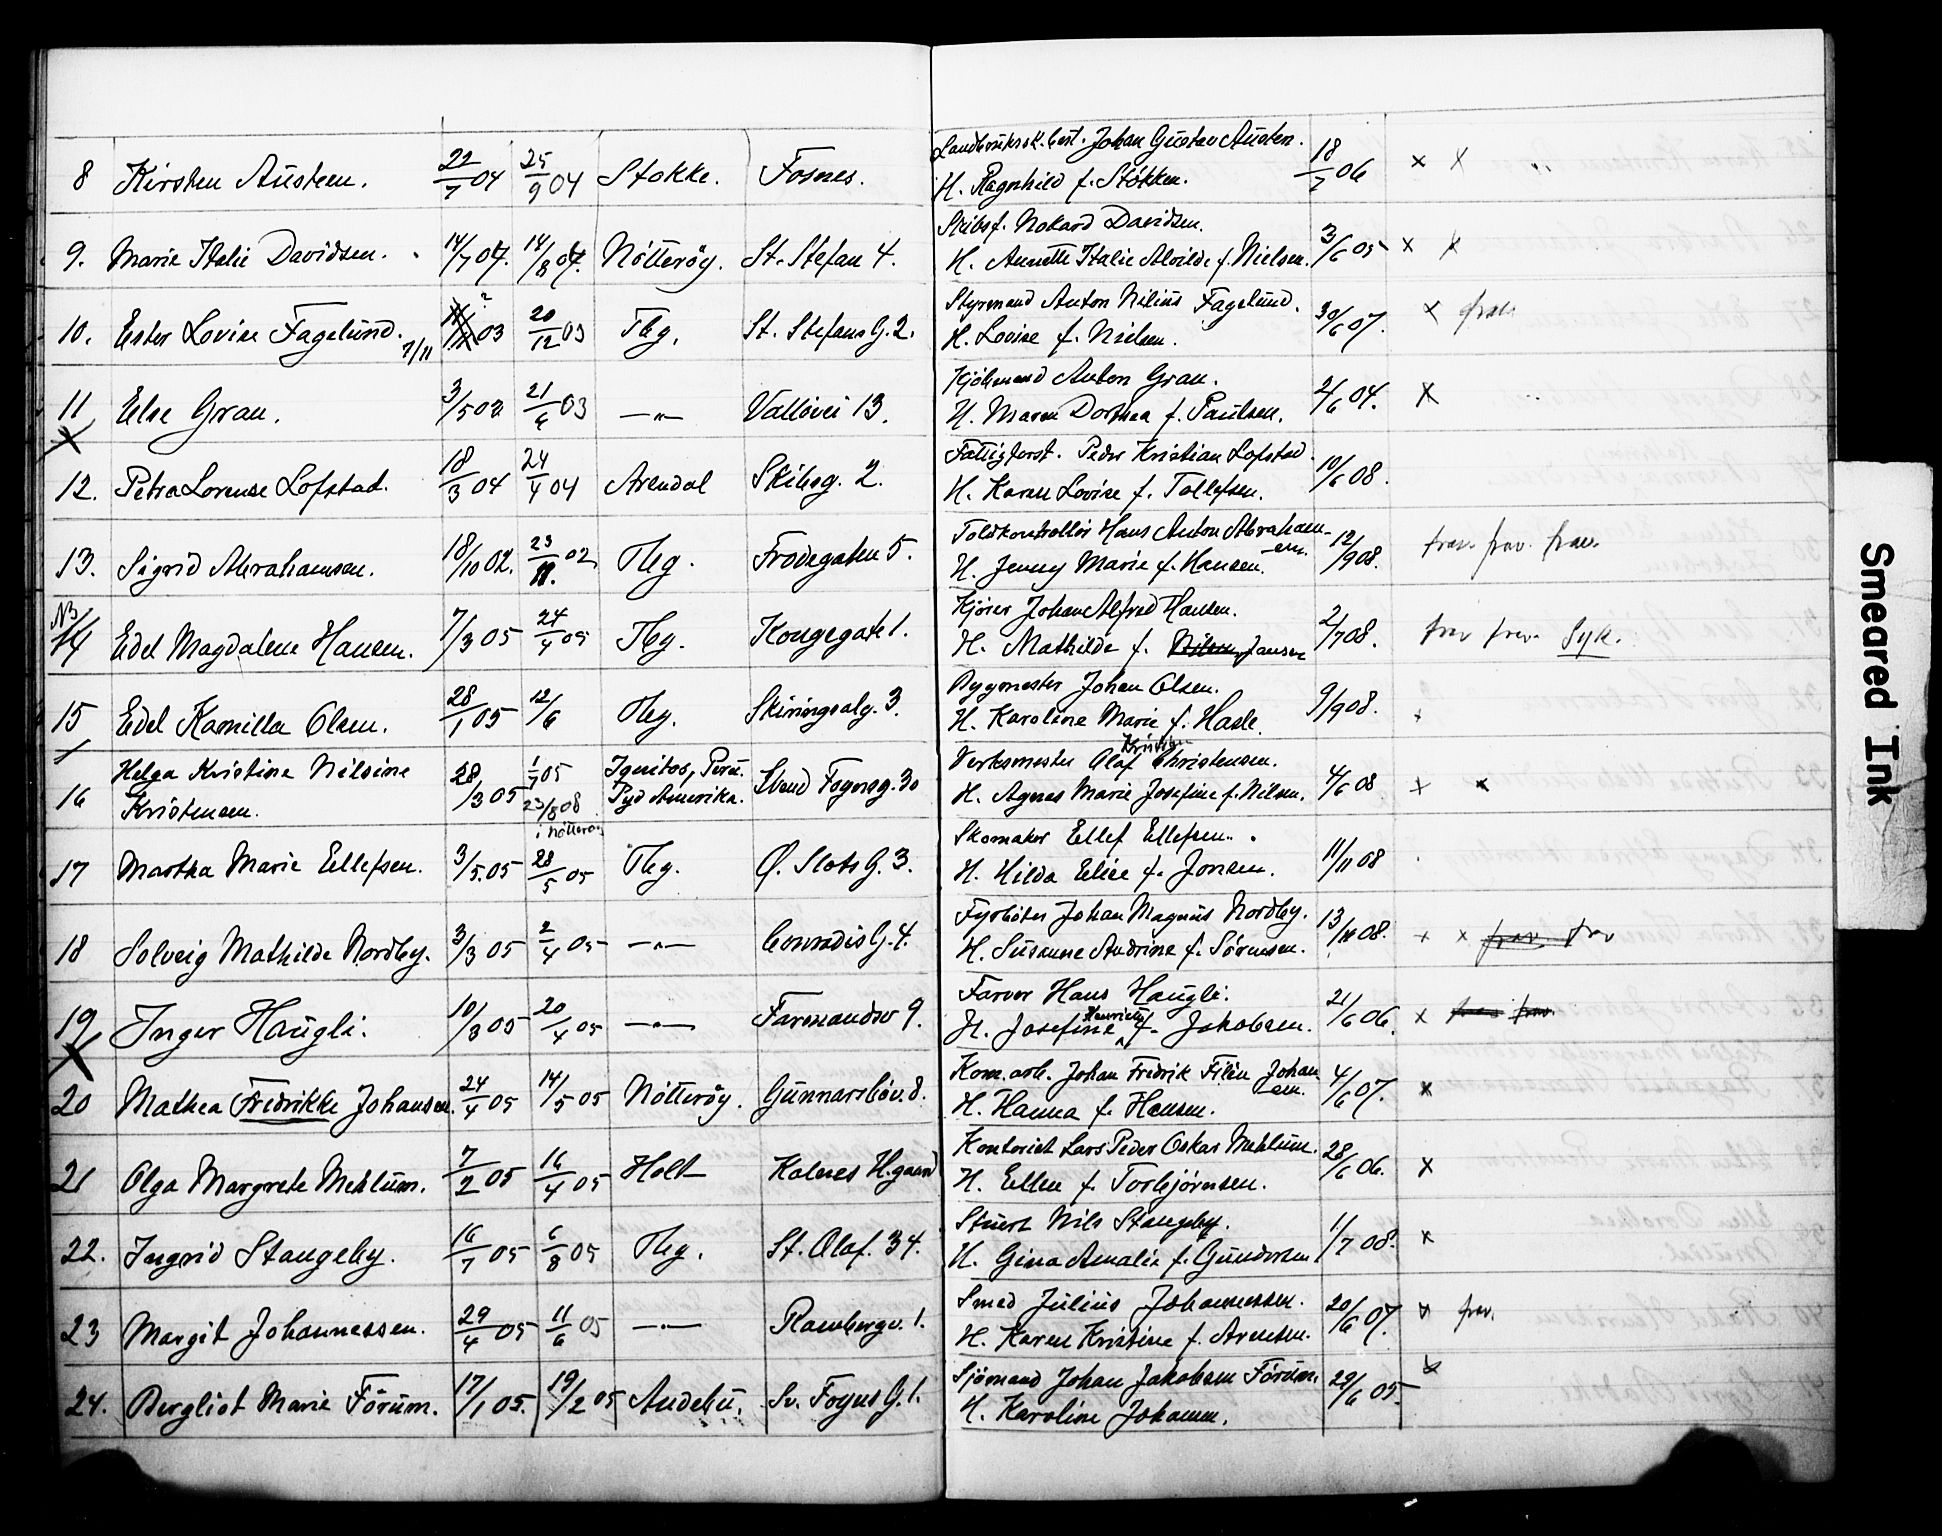 8 Kirsten Austeen. 22/7 04 25/9 04 Stokke. Fosnes. Landbruksk.best. Johan Gustav Austen. H. Ragnhild f. Stökken. 18/7 06 x x
9. Marie Italie Davidsen. 14/7 04. 14/8 04. Nötteröy. St. Stefan 4. Skibsf. Nokard Davidsen. H. Annette Italie Alvilde f. Nielsen. 3/6 05 x x
10. Ester Lovise Fagelund. 7/11 03 20/12 03 Tbg. St. Stefans G. 2. Styrmand Anton Nilius Fagelund. H. Lovise f. Nielsen. 30/6 07. x frav
11 Else Gran. 3/5 02 21/6 03 —"— Vallövei 13. Kjöbmand Anton Gran. H. Maren Dorthea f. Paulsen. 2/6 04. x
12. Petra Lorense Lofstad. 18/3 04 24/4 04 Arendal Skibsg. 2. Fattigforst. Peder Kristian Lofstad. H. Karen Lovise f. Tollefsen. 10/6 08.
13. Sigrid Abrahamsen. 18/10 02. 23/11. 02 Tbg. Frodegaten 5. Toldkontrollör Hans Anton Abrahamsen. H. Jenny Marie f. Hansen. 12/9 08. frav. frav. frav.
N3 14 Edel Magdalene Hansen. 7/3 05 24/4 05 Tbg. Kongegate 1. Kjörer Johan Alfred Hansen. H. Mathilde f. Jansen 2/7 08. frav frav. Syk.
15 Edel Kamilla Olsen. 28/1 05 12/6 Tbg. Skiringsalg. 3. Bygmester Johan Olsen. H. Karoline Marie f. Hasle. 9/9 08. x
16 Helga Kristine Nilsine Kristensen. 28/3 05 1/7 05 23/8 08 i Nötterö Iquitos, Peru. Syd Amerika. Svend Foynsg. 30 Verksmester Olaf Kristian Christensen. H. Agnes Marie Josefine f. Nilsen. 4/6 08 x x
17 Martha Marie Ellefsen. 3/5. 05 28/5 05 Tbg. Ø. Slots G. 3. Skomaker Ellef Ellefsen. H. Hilda Elise f. Jonsen. 11/11 08
18 Solveig Mathilde Nordby. 3/3 05 2/4 05 —"— Conradis G. 4. Fyrböter Johan Magnus Nordby. H. Susanne Andrine f. Sörensen. 13/11 08. x x frav. frav
19 Inger Haugli. 10/3 05 20/4 05 —"— Farmandsv 9. Farver Hans Haugli. H. Josefine Henriette f. Jakobsen. 21/6 06. x frav frav.
20 Mathea Fredrikke Johansen. 24/4 05 14/5 05 Nötteröy. Gunnarsböv. 8. Kom.arb. Johan Fredrik Filén Johansen. H. Hanna f. Hansen. 4/6 07. x
21 Olga Margrete Mehlum. 7/2 05 16/4 05 Holt Kalnes H.gaard Kontorist Lars Peder Oskar Mehlum. H. Ellen f. Torbjörnsen. 28/6 06. x
22. Ingrid Stangeby. 16/7 05 6/8 05 Tbg. St. Olaf. 34. Stuert Nils Stangeby. H. Gina Amalie f. Gundersen 1/7 08. x
23 Margit Johannessen. 29/4 05 11/6 05 —"— Rambergv. 1. Smed Julius Johannessen. H. Karen Kristine f. Arentsen. 20/6 07. x frav.
24. Bergliot Marie Förum. 17/1 05. 19/2 05 Andebu. Sv. Foyns G. 1. Sjömand Johan Jakobsen Förum. H. Karoline Johansen. 29/6 05. x
Smeared Ink